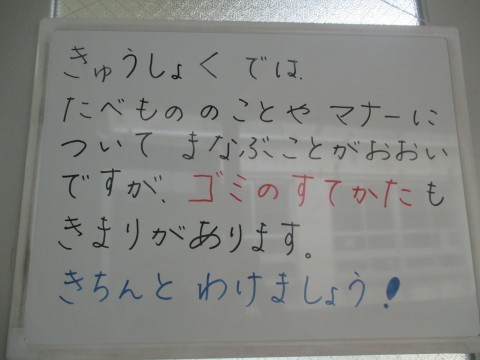 きゅうしょく では、
たべもののことや マナーに
ついて まなぶことがおおい
ですが、ゴミのすてかたも
きまりがあります。
きちんと わけましょう!